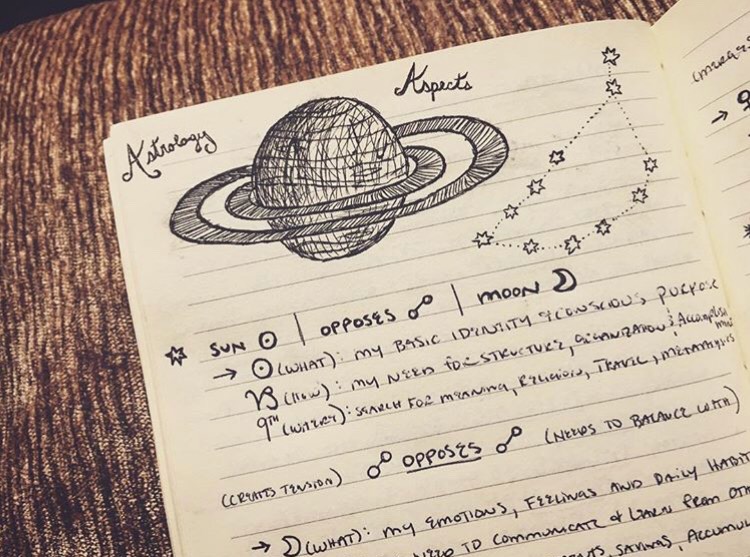 Astrology Aspects
☆ SUN ☉ | OPPOSES ☍ | MOON ☽
→ ☉ (WHAT): MY BASIC IDENTITY & CONSCIOUS, PURPOSE
♑ (HOW): MY NEED FOR STRUCTURE, ORGANIZATION, & ACCOMPLISHMENT
9TH (WHERE): SEARCH FOR MEANING, RELIGION, TRAVEL, METAPHYSICS
(CREATES TENSION) ☍ OPPOSES ☍ (NEEDS TO BALANCE WITH)
→ ☽ (WHAT): MY EMOTIONS, FEELINGS AND DAILY HABIT
NEED TO COMMUNICATE & LEARN FROM OTH
SAVINGS, ACCUMUL